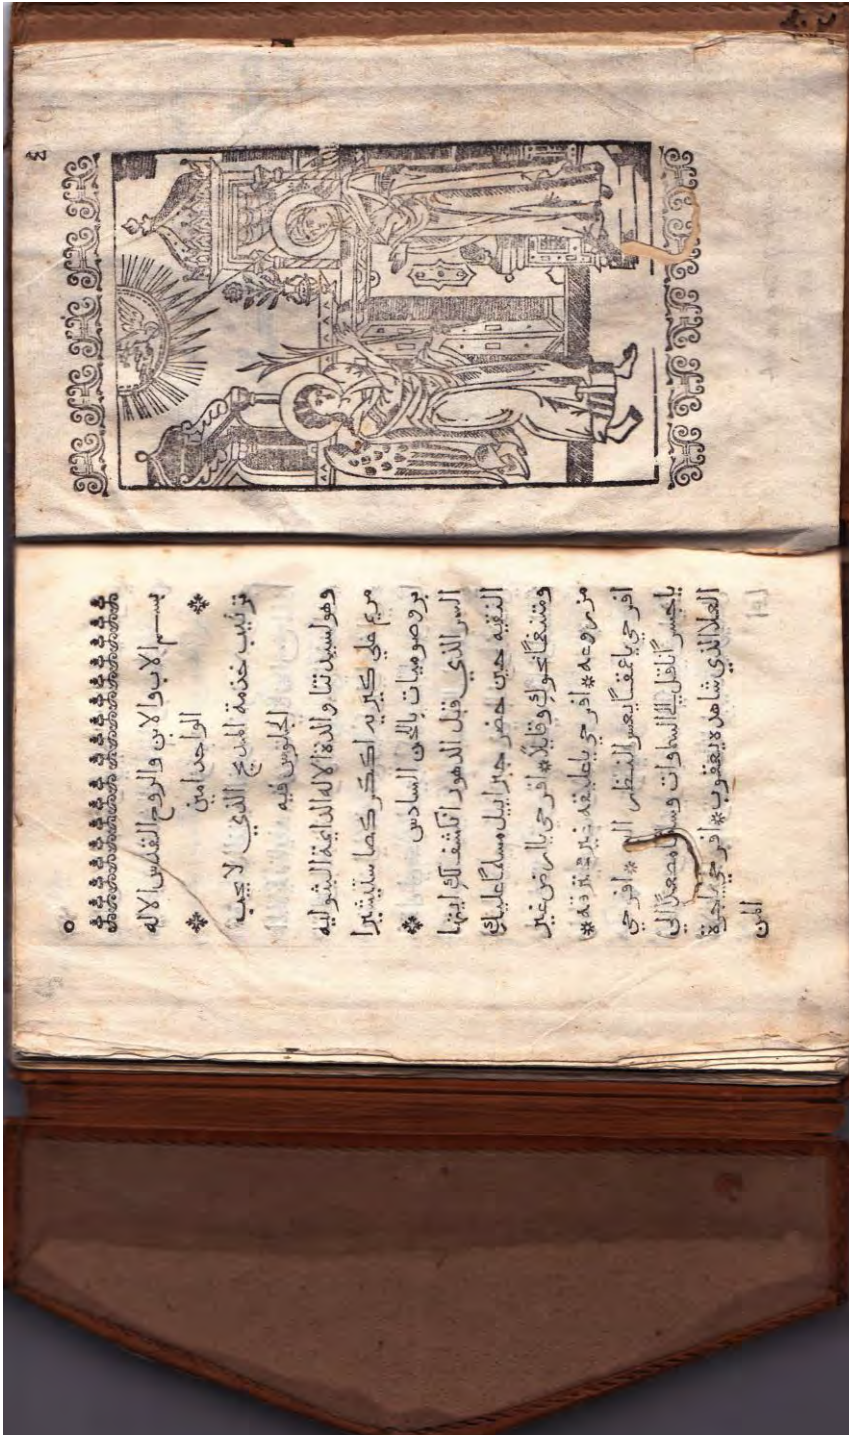 ٤
٥
بسم الاب والابن والروح القدس الاله
الواحد امين
ترتيب خدمة المديح الذي لا يجب
الجلوس فيه
وهو لسيدتنا والدة الاله الدايمة البتوليه
مريم علي كيريه اككركصا ستيشيرا
بروصوميات باللحن السادس
السر الذي قبل الدهور انكشف لك ايتها
النقيه حين حضر جبراييل مسلماً عليك
ومتنغماً نحوك وقايلاً * افرحي يا ارض غير
مزروعه * افرحي يا عليقه غير محترقه *
افرحي يا عمقاً يعسر النظر اليه * افرحي
يا جسراً ناقل الي السماوات وسلماً مصعداً الي
العلا الذي شاهده يعقوب * افرحي يا جرة
المن